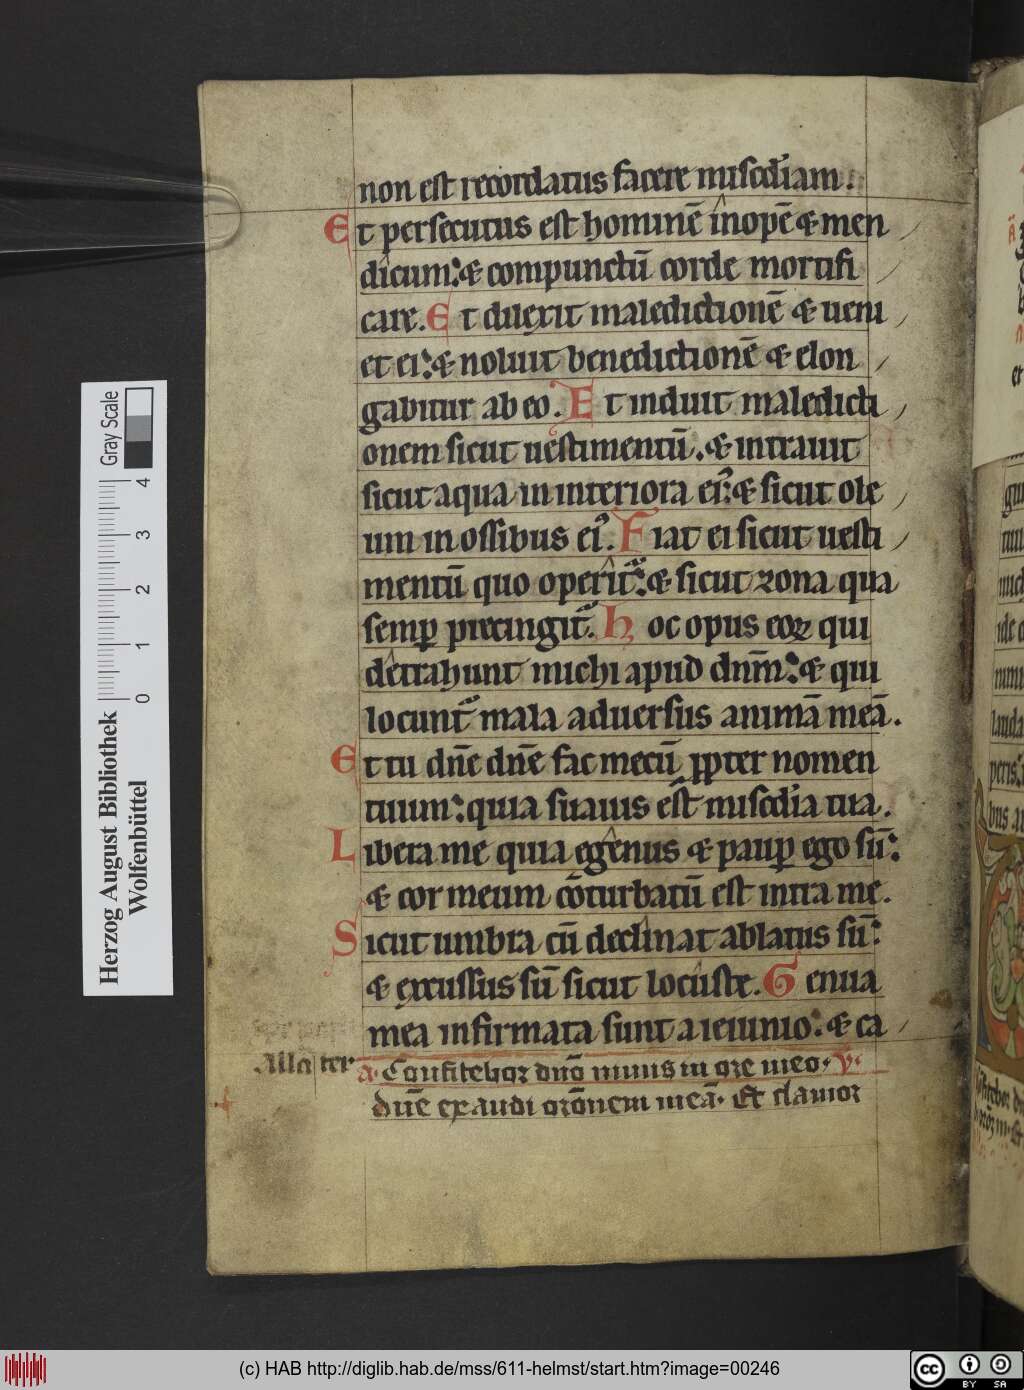 non est recordatus facere misc̄diam.
Et persecutus est hominē inopē & men
dicum: & compunctū corde mortifi
care. Et dilexit maledictionē & ueni
et ei: & noluit benedictionē & elon
gabitur ab eo. Et induit maledicti
onem sicut uestimentū. & intrauit
sicut aqua in interiora ei: & sicut ole
um in ossibus ei. Fiat ei sicut uesti
mentū quo operit: & sicut zona qua
semp precingit. Hoc opus eoꝝ qui
detrahunt michi apud dn̄m: & qui
locunt mala aduersus animā meā.
Et tu dn̄e dn̄e fac mecū ꝓpter nomen
tuum: quia suauis est misc̄dia tua.
Libera me quia egenus & paup ego sū:
& cor meum cōturbatū est intra me.
Sicut umbra cū declinat ablatus sū:
& excussus sū sicut locuste. Genua
mea infirmata sunt a ieiunio: & ca
All'a ter
a. Confitebor dn̄o nimis in ore meo. V.
dn̄e exaudi orōnem meā. Et clamor
Herzog August Bibliothek
Wolfenbüttel
0 1 2 3 4
Gray Scale
(c) HAB http://diglib.hab.de/mss/611-helmst/start.htm?image=00246
cc BY SA